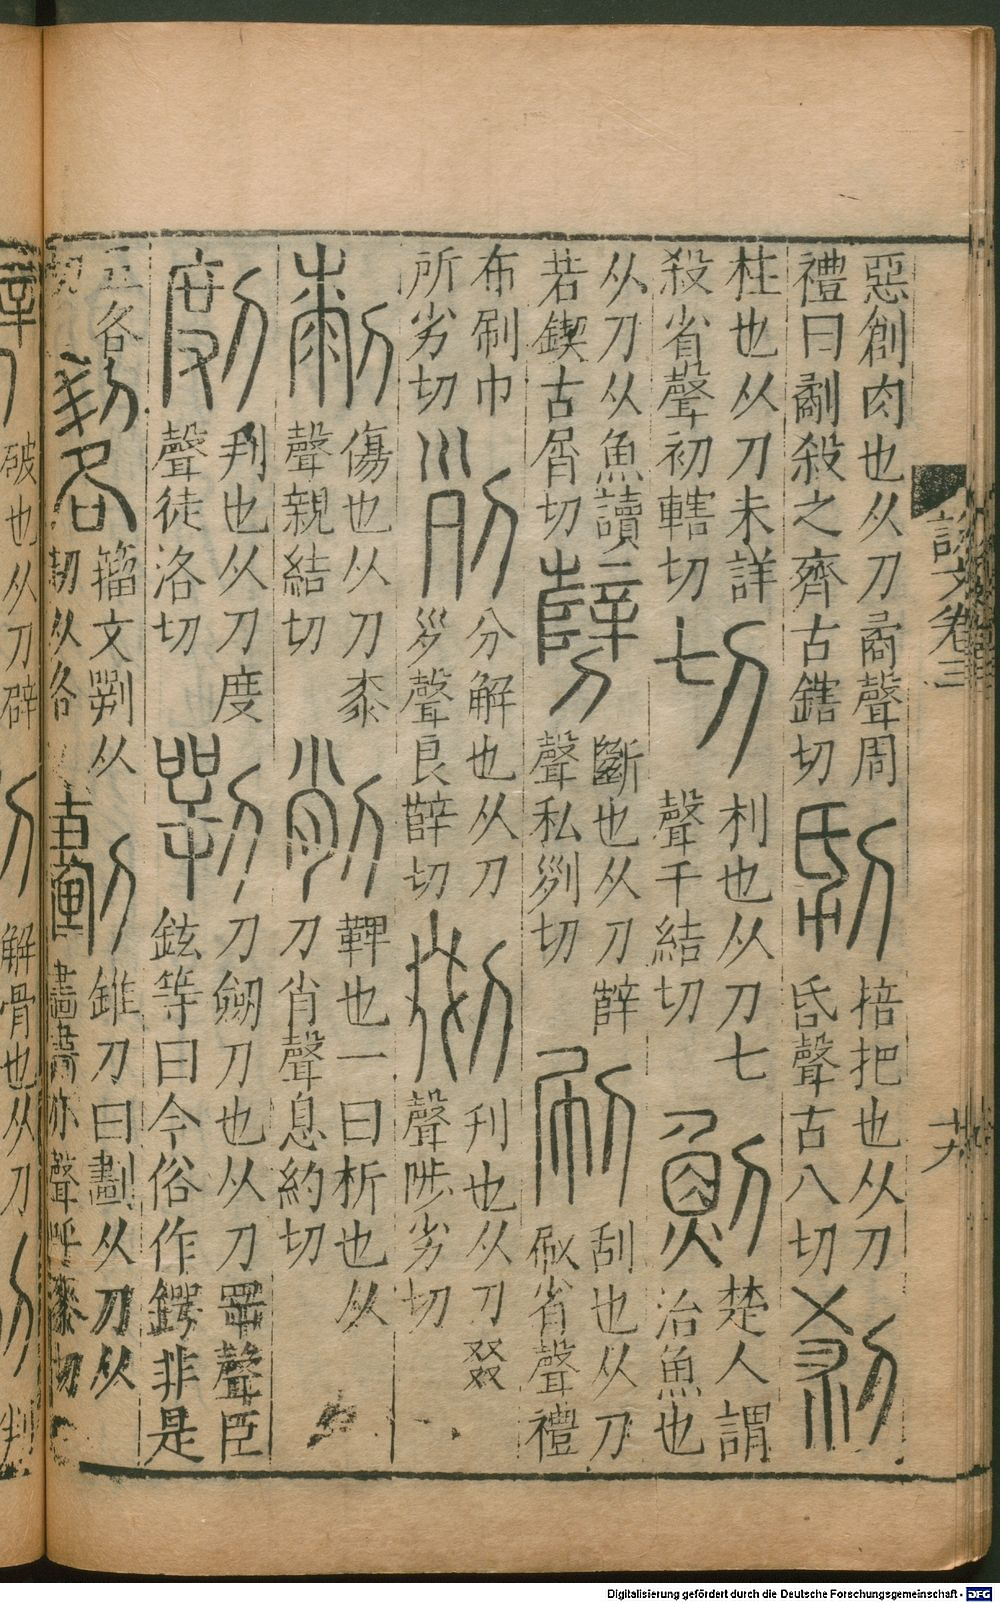 説文卷三
惡創肉也从刀矞聲周
禮曰劀殺之齊古鎋切
刮
掊把也从刀
昏聲古八切
刹
柱也从刀未詳
殺省聲初轄切
切
利也从刀七
聲千結切
魝
楚人謂
治魚也
从刀从魚讀
若鍥古屑切
斷也从刀薛
聲私列切
刷
刮也从刀
㕞省聲禮
布刷巾
所劣切
列
分解也从刀
𡿪聲良薛切
剟
刊也从刀叕
聲陟劣切
傷也从刀桼
聲親結切
削
鞞也一曰析也从
刀肖聲息約切
剫
判也从刀度
聲徒洛切
㓵
刀劒刀也从刀咢聲臣
鉉等曰今俗作鍔非是
五各
切
籒文㓵从
㓞从各
劃
錐刀曰劃从刀从
畫畫亦聲呼麥切
破也从刀辟
解骨也从刀
判
Digitalisierung gefördert durch die Deutsche Forschungsgemeinschaft - DFG